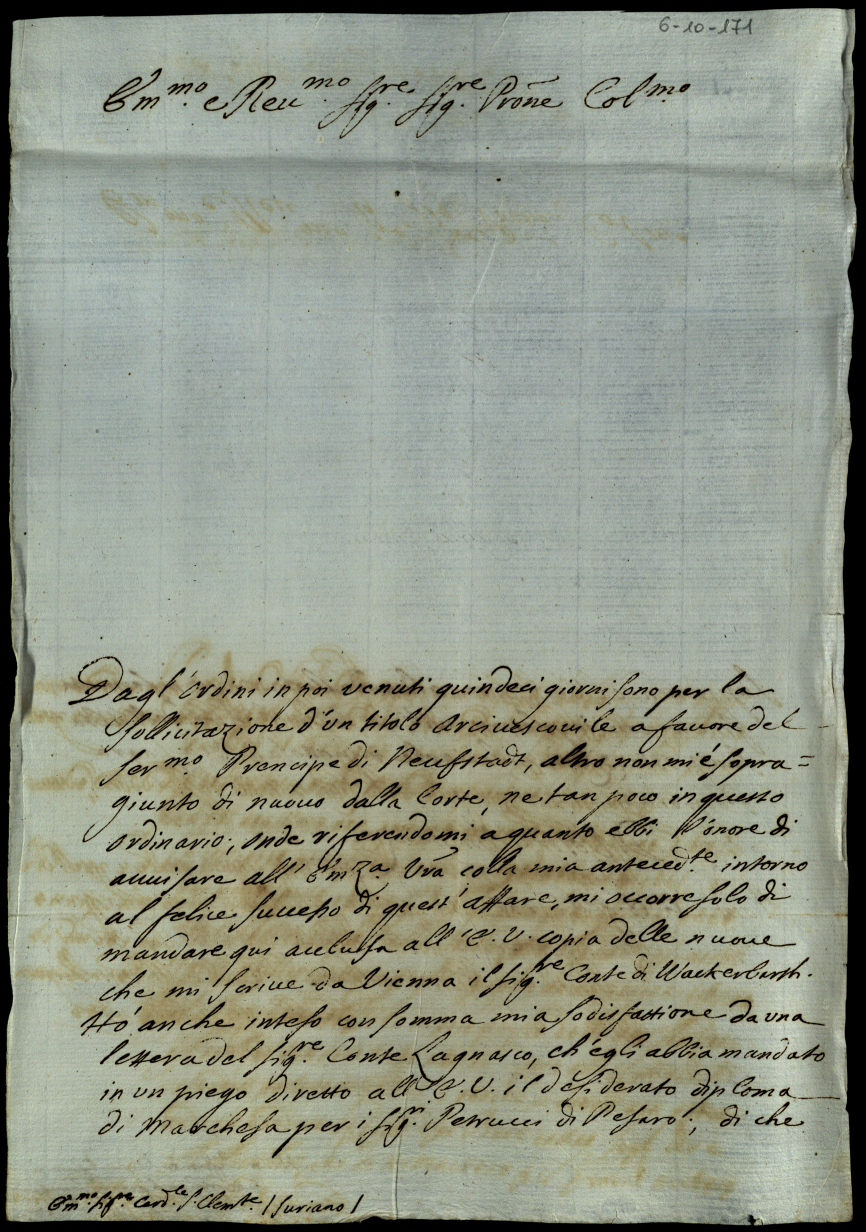 6-10-171
Em.mo e Reu.mo Sig.re Sig.re Prõne Col.mo
Dagl'ordini in poi venuti quindeci giorni sono per la
sollicitazione d'un titolo Arciuescouile a fauore del
Ser.mo Prencipe di Neufstadt, altro non mi é sopra=
giunto di nuouo dalla Corte, ne tan poco in questo
ordinario, onde riferendomi a quanto ebbi l'onore di
auuisare all'Em.za Vra colla mia anteced.te intorno
al felice successo di quest'affare, mi occorre solo di
mandare qui acclusa all'E.V. copia delle nuoue
che mi scriue da Vienna il Sig.re Conte di Wackerbarth.
Hó anche inteso con somma mia sodisfattione da una
lettera del Sig.re Conte Lagnasco, ch'egli abbia mandato
in un piego diretto all'E.V. il desiderato diploma
di Marchesa per i Sig.ri Petrucci di Pesaro, di che
Em.mo Sig.re Card.le S. Clem.te / Suriano /